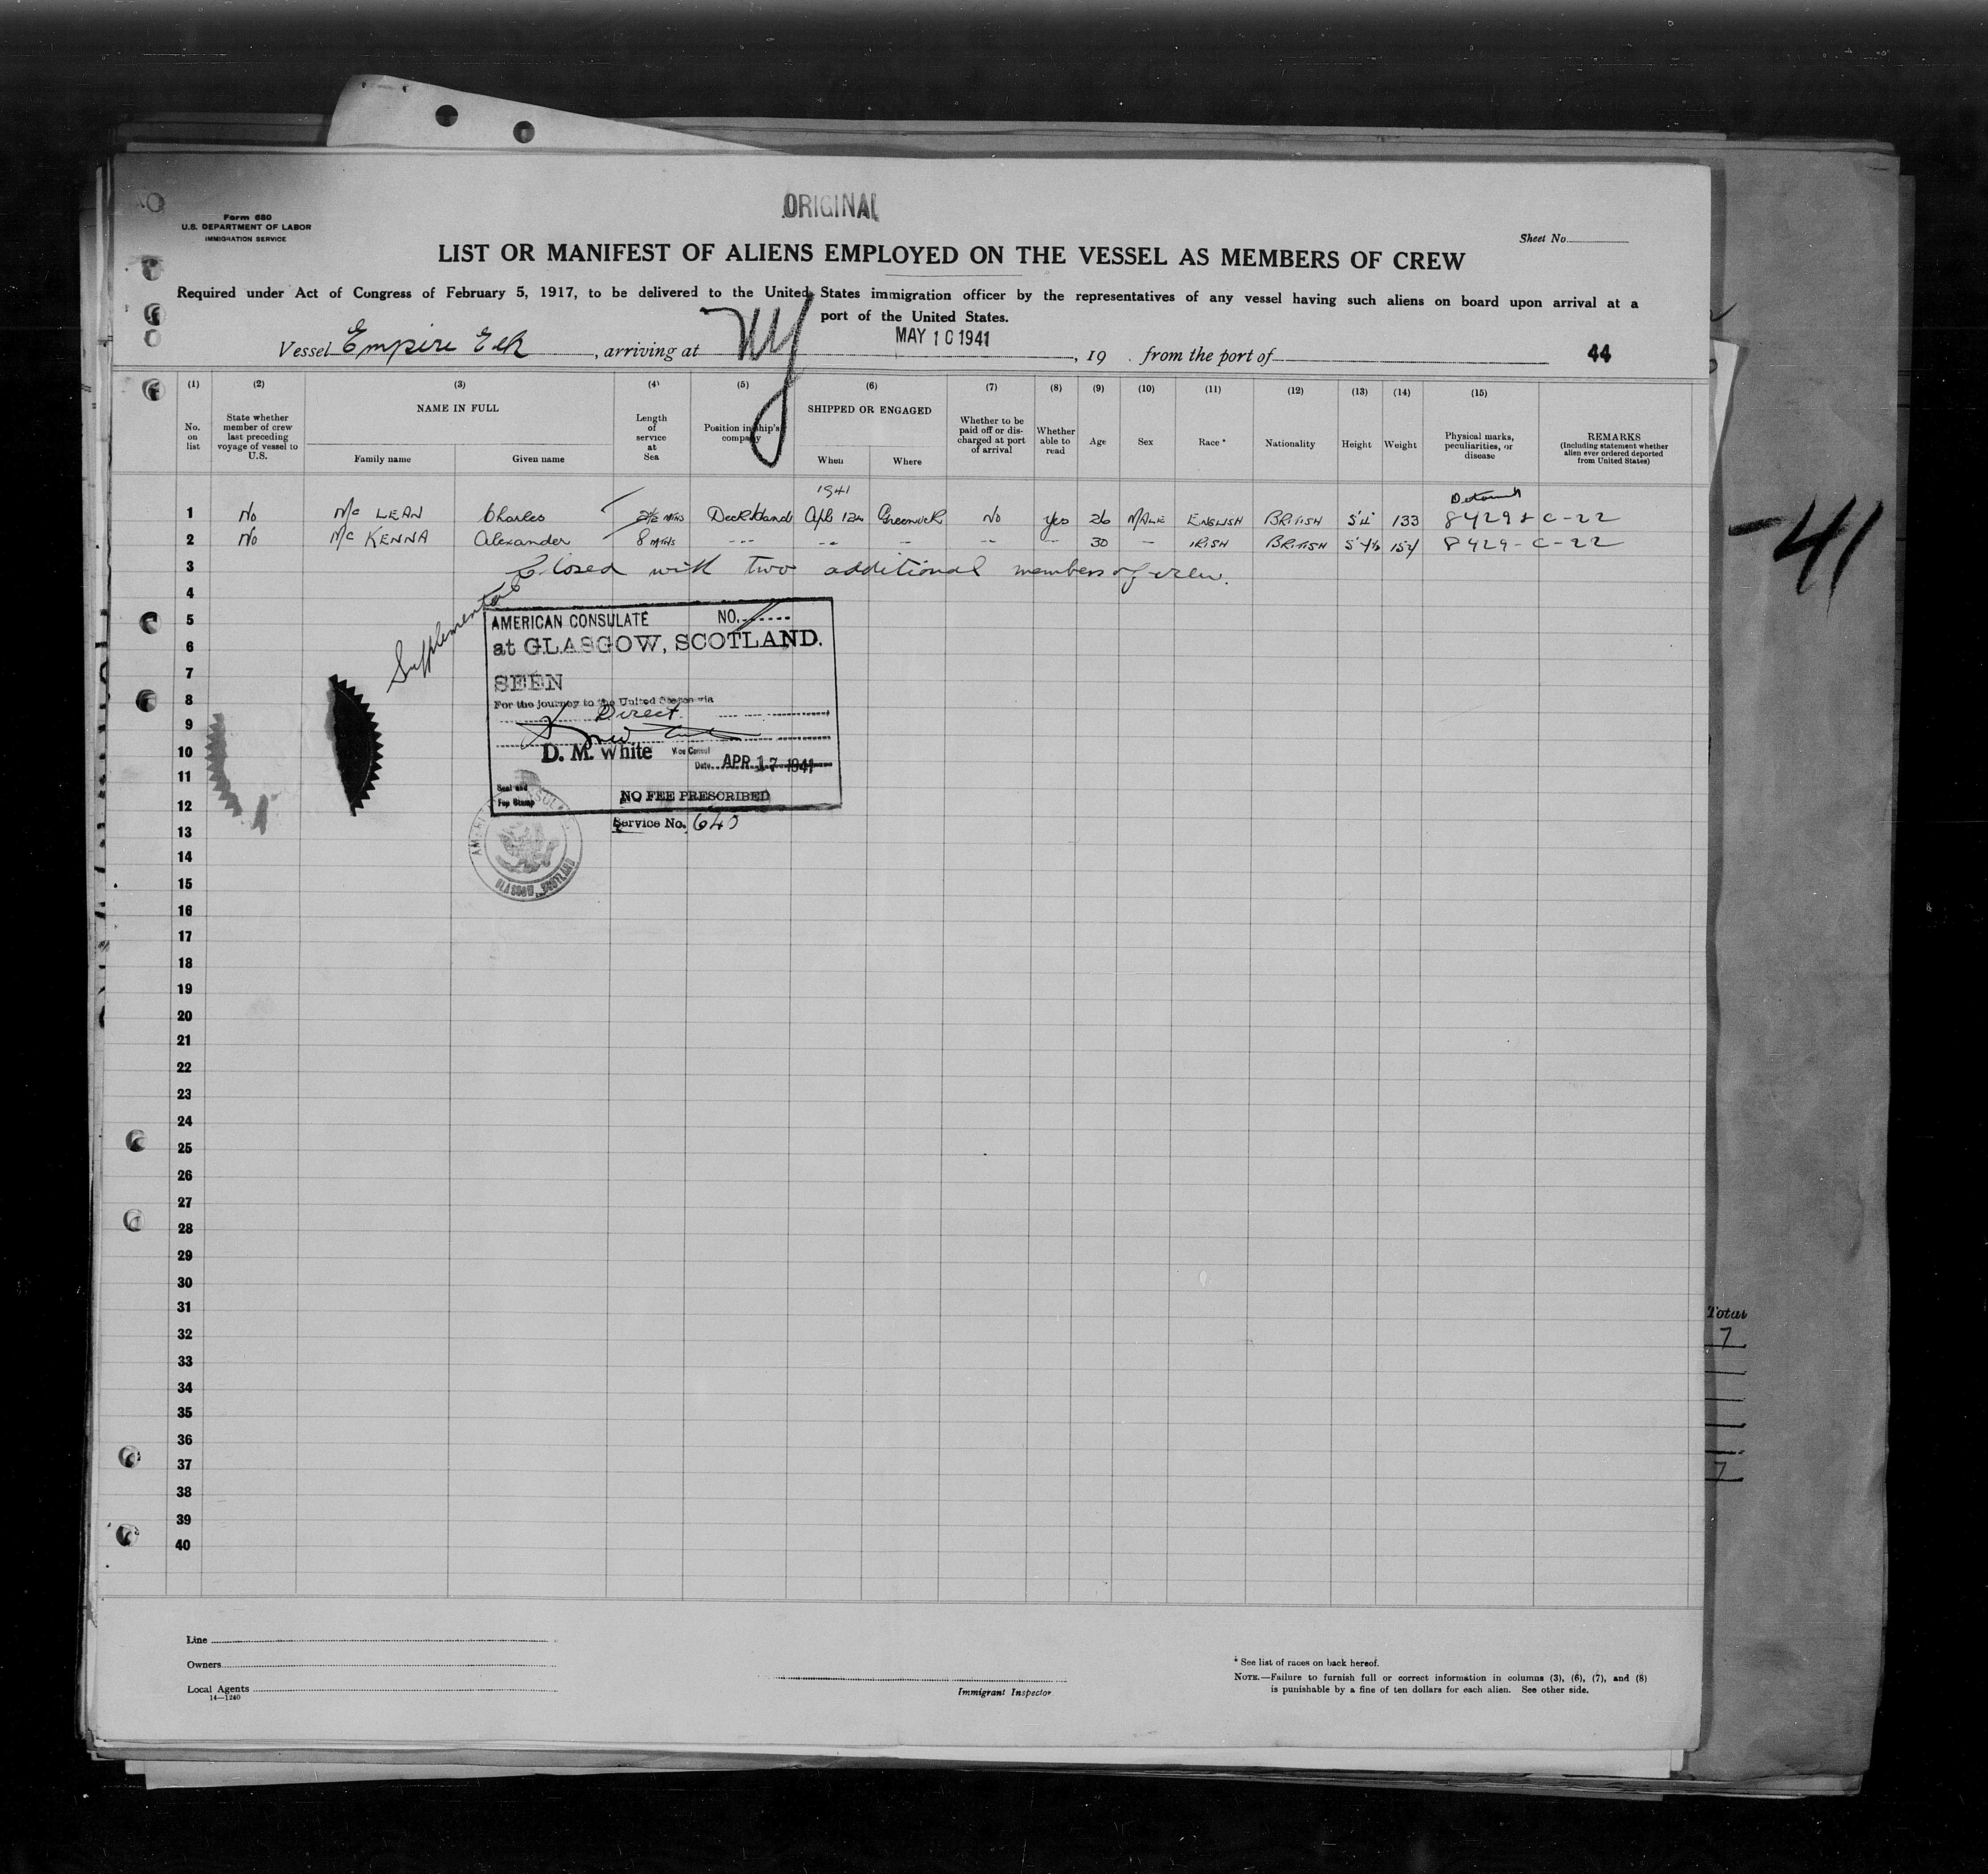 ORIGINAL
Form 680
U.S. DEPARTMENT OF LABOR
IMMIGRATION SERVICE
Sheet No.
LIST OR MANIFEST OF ALIENS EMPLOYED ON THE VESSEL AS MEMBERS OF CREW
Required under Act of Congress of February 5, 1917, to be delivered to the United States immigration officer by the representatives of any vessel having such aliens on board upon arrival at a
port of the United States.
Vessel Empire Elk, arriving at NY MAY 10 1941, 19 . from the port of 44
(1) (2) (3) (4) (5) (6) (7) (8) (9) (10) (11) (12) (13) (14) (15)
No. on list
State whether member of crew last preceding voyage of vessel to U.S.
NAME IN FULL
Family name
Given name
Length of service at Sea
Position in ship's company
SHIPPED OR ENGAGED
When
Where
Whether to be paid off or discharged at port of arrival
Whether able to read
Age
Sex
Race *
Nationality
Height
Weight
Physical marks, peculiarities, or disease
REMARKS
(Including statement whether alien ever ordered deported from United States)
1941
1 No Mc LEAN Charles 2½ MTHS Deck Hand Greenock No yes 26 MALE ENGLISH BRITISH 133 C-22
2 No Mc KENNA Alexander 8 MTHS --- -- - -- -- 30 - IRISH BRITISH 154 8429-C-22
3 Closed with two additional members of crew.
4
Supplemental
5
6
7
8
9
10
11
12
13
14
15
16
17
18
19
20
21
22
23
24
25
26
27
28
29
30
31
32
33
34
35
36
37
38
39
40
AMERICAN CONSULATE NO.
at GLASGOW, SCOTLAND.
SEEN
For the journey to the United States via
Direct
D. M. White Vice Consul
Date APR 17 1941
Seal and
Fee Stamp
NO FEE PRESCRIBED
Service No.
GLASGOW, SCOTLAND
-41
Total
7
7
Line
Owners
Local Agents
14—1240
Immigrant Inspector
* See list of races on back hereof.
NOTE.—Failure to furnish full or correct information in columns (3), (6), (7), and (8)
is punishable by a fine of ten dollars for each alien. See other side.